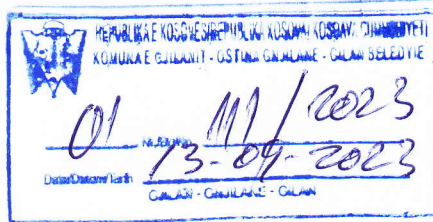 REPUBLIKA E KOSOVES/REPUBLIKA KOSOVA/KOSOVA CUMHURIYETI
KOMUNA E GJILANIT - OSTINA GNJILANE - GILAN BELEDYIE
01 111/2023
13-04-2023
Data/Datum/Tarih
GJILAN - GNJILANE - GILAN